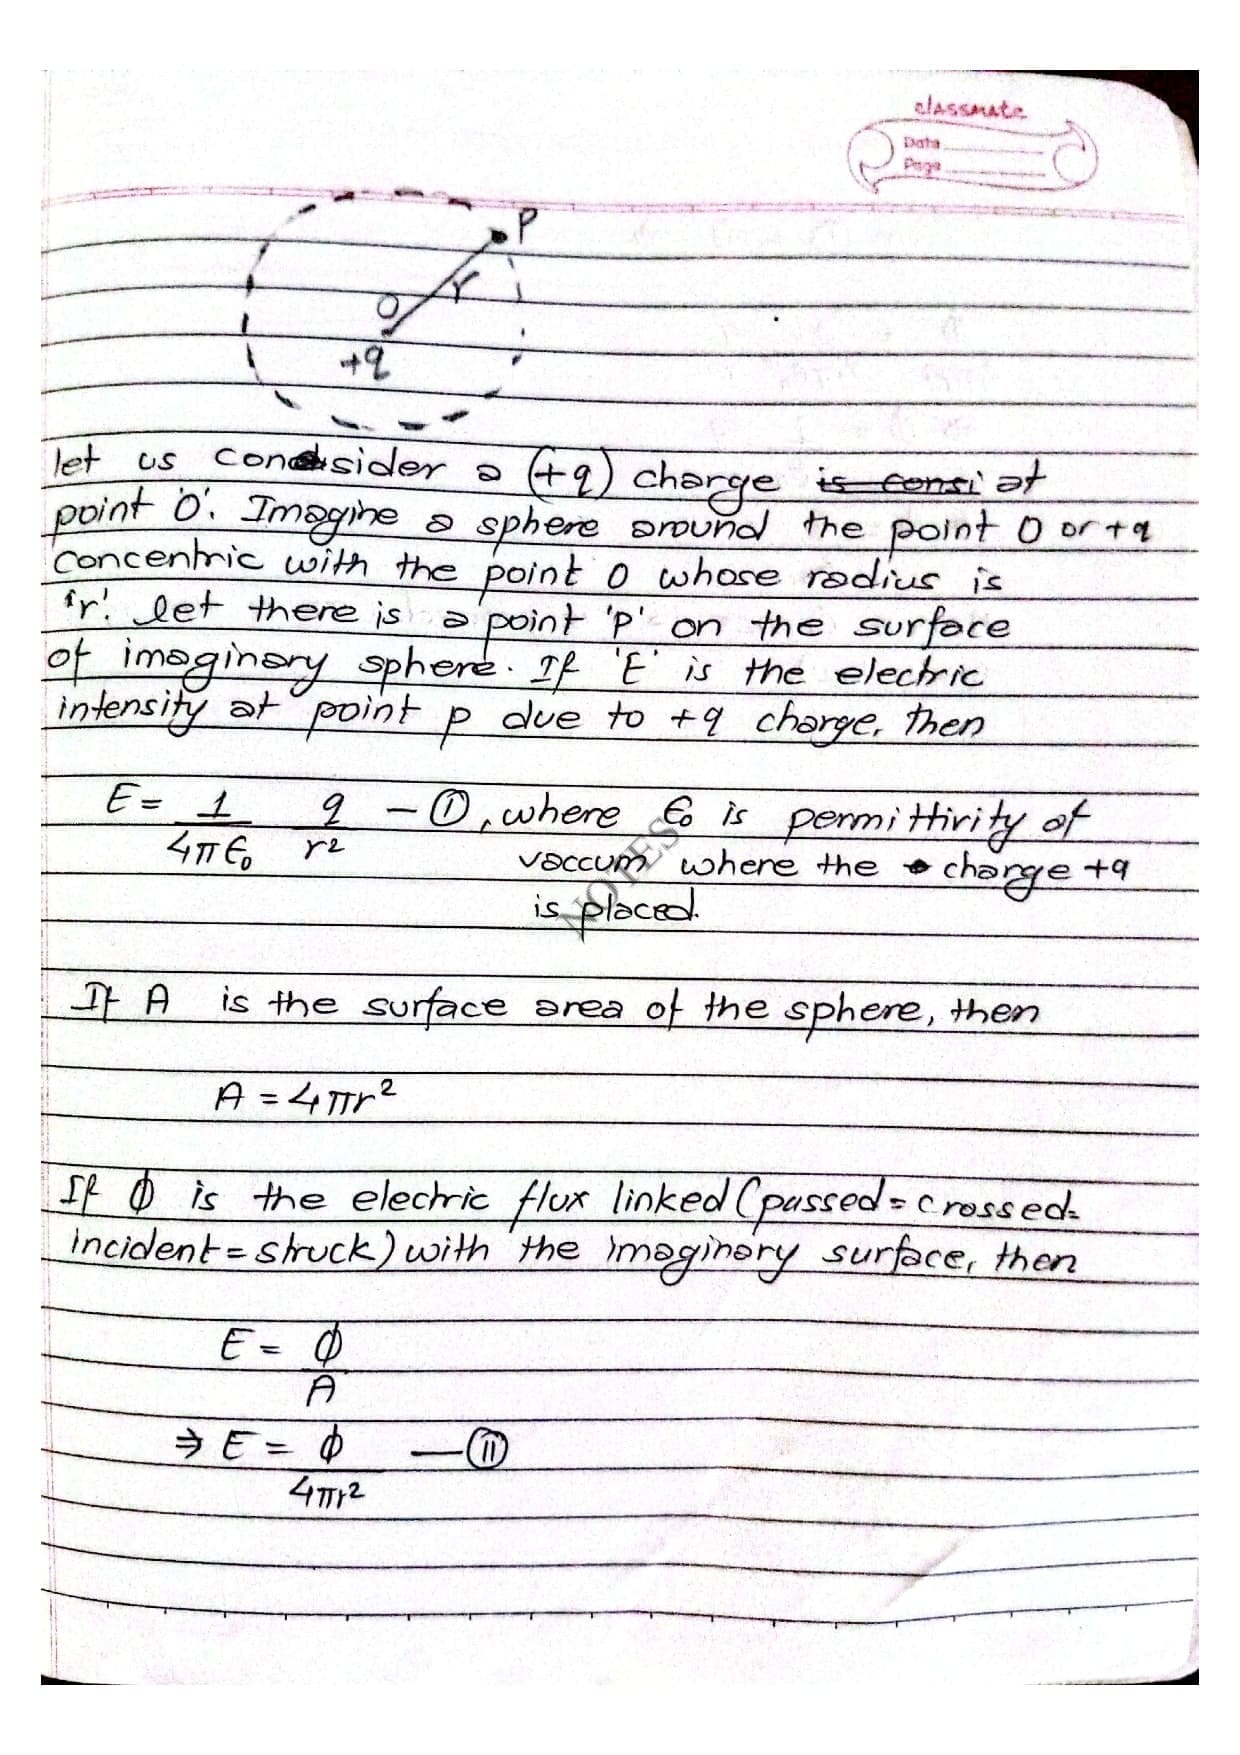 classmate
Date
Page
P
r
O
+q
let us consider a (+q) charge is consi at
point 'O'. Imagine a sphere around the point O or +q
concentric with the point O whose radius is
'r'. let there is a point 'P' on the surface
of imaginary sphere. If 'E' is the electric
intensity at point p due to +q charge, then
E = 1/4πϵ₀ q/r² — (I), where ϵ₀ is permittivity of
vaccum where the charge +q
is placed.
NOTES
If A is the surface area of the sphere, then
A = 4πr²
If ϕ is the electric flux linked (passed = crossed =
incident = struck) with the imaginary surface, then
E = ϕ/A
⇒ E = ϕ/4πr² — (II)